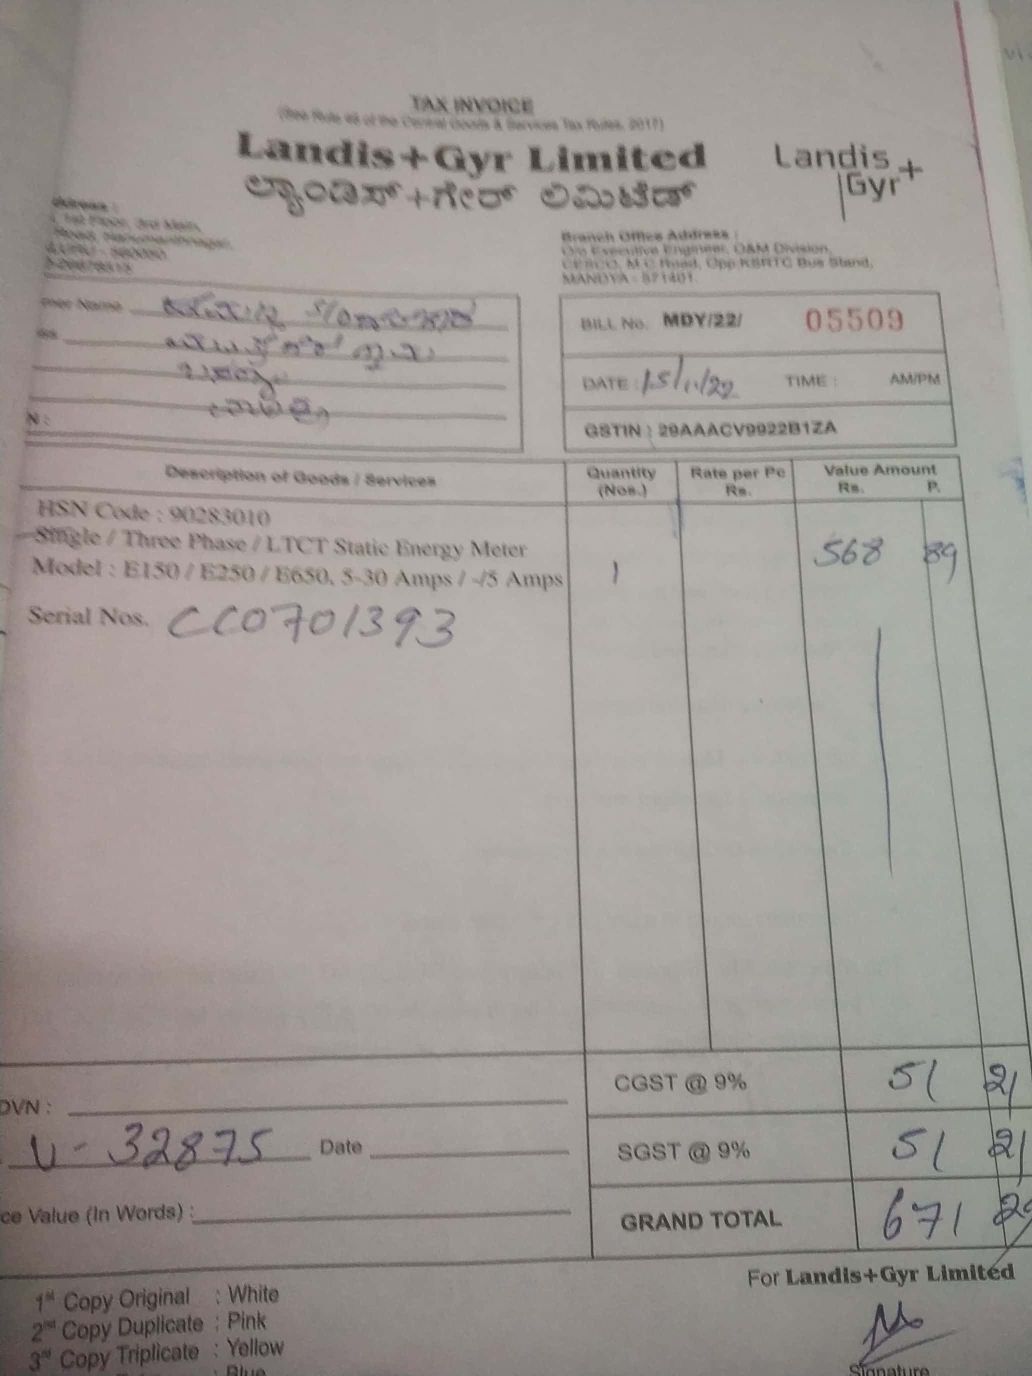 TAX INVOICE
(See Rule 46 of the Central Goods & Services Tax Rules, 2017)
Landis+Gyr Limited
ಲ್ಯಾಂಡಿಸ್+ಗೇರ್ ಲಿಮಿಟೆಡ್
Landis
Gyr+
Address :
Floor, 3rd Main,
Road, Hanumanthnagar,
Branch Office Address :
O/o Executive Engineer, O&M Division,
CESCO, M.C Road, Opp.KSRTC Bus Stand,
MANDYA - 571401.
Name
BILL No. MDY/22/ 05509
DATE : 15/11/22 TIME : AM/PM
N :
GSTIN : 29AAACV9922B1ZA
Description of Goods / Services
Quantity
(Nos.)
Rate per Pc
Rs.
Value Amount
Rs. P.
HSN Code : 90283010
Single / Three Phase / LTCT Static Energy Meter
Model : E150 / E250 / E650, 5-30 Amps / -/5 Amps
1
568 89
Serial Nos. CC0701393
CGST @ 9% 51 21
DVN :
U - 32875 Date
SGST @ 9% 51 21
ce Value (In Words) :
GRAND TOTAL 671
For Landis+Gyr Limited
1st Copy Original : White
2nd Copy Duplicate : Pink
3rd Copy Triplicate : Yellow
: Blue
Signature